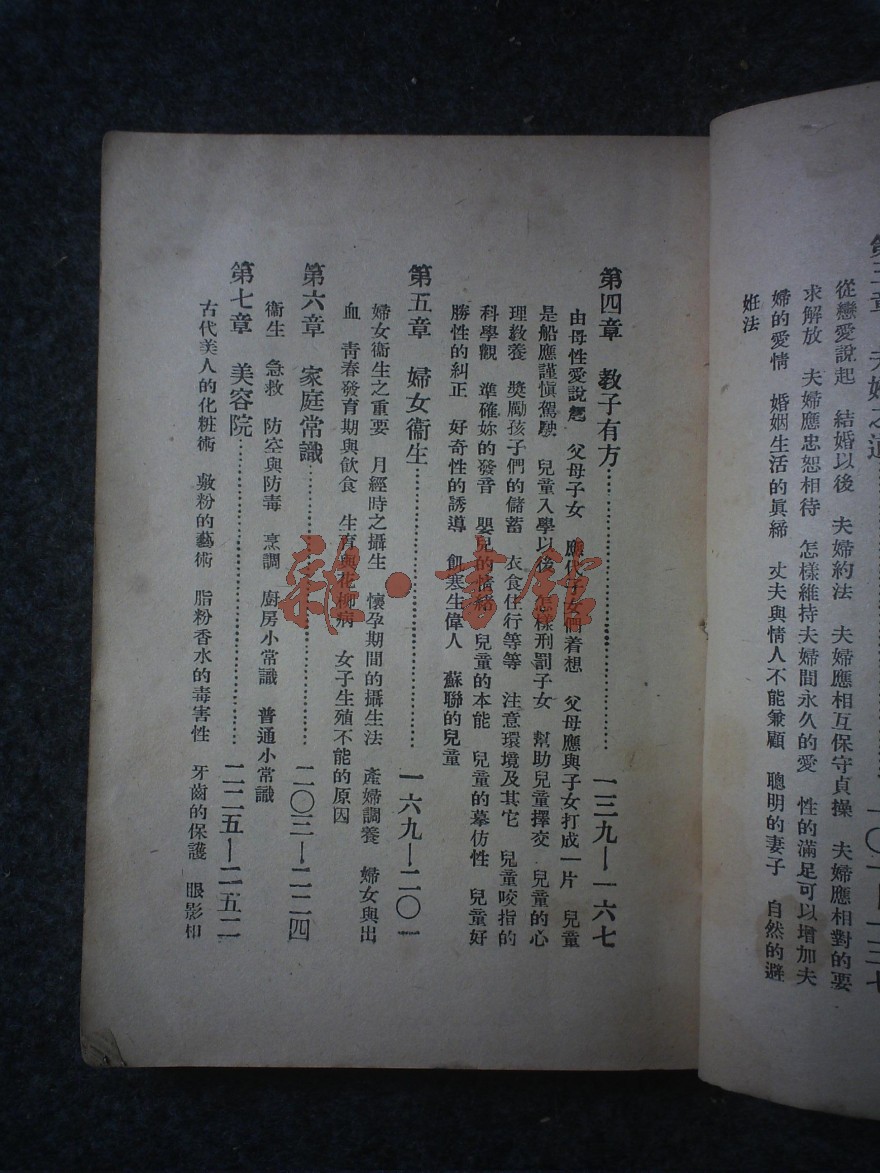 第三章 夫婦之道
一〇一—一三七
從戀愛說起 結婚以後 夫婦約法 夫婦應相互保守貞操 夫婦應相對的要
求解放 夫婦應忠恕相待 怎樣維持夫婦間永久的愛 性的滿足可以增加夫
婦的愛情 婚姻生活的眞締 丈夫與情人不能兼顧 聰明的妻子 自然的避
姙法
第四章 敎子有方……一三九—一六七
由母性愛說起 父母子女 應代子女們着想 父母應與子女打成一片 兒童
是船應謹愼駕駛 兒童入學以後 怎樣刑罰子女 幫助兒童擇交 兒童的心
理敎養 獎勵孩子們的儲蓄 衣食住行等等 注意環境及其它 兒童咬指的
科學觀 準確妳的發音 嬰兒的情緒 兒童的本能 兒童的摹仿性 兒童好
勝性的糾正 好奇性的誘導 飢寒生偉人 蘇聯的兒童
第五章 婦女衞生……一六九—二〇一
婦女衞生之重要 月經時之攝生 懷孕期間的攝生法 產婦調養 婦女與出
血 靑春發育期與飮食 生育與花柳病 女子生殖不能的原因
第六章 家庭常識……二〇三—二二四
衞生 急救 防空與防毒 烹調 廚房小常識 普通小常識
第七章 美容院……二二五—二五二
古代美人的化粧術 敷粉的藝術 脂粉香水的毒害性 牙齒的保護 眼影和
雜·書館